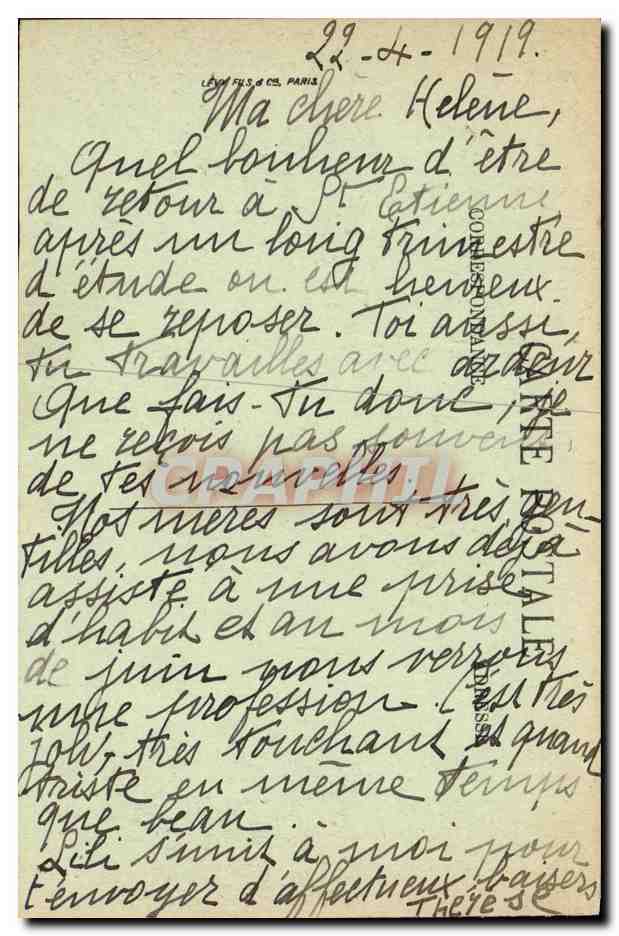 22-4-1919.
LÉVY FILS & Cie, PARIS
Ma chère Helène,
Quel bonheur d'être
de retour à St Etienne
après un long trimestre
d'étude on est heureux
de se reposer. Toi aussi,
tu travailles avec ardeur
Que fais-tu donc, je
ne reçois pas souvent
de tes nouvelles.
Nos mères sont très gen-
tilles, nous avons déjà
assisté à une prise
d'habit et au mois
de juin nous verrons
une profession. C'est très
joli, très touchant et quand
triste en même temps
que beau.
Lili s'unit à moi pour
t'envoyer d'affectueux baisers
Thérèse
CORRESPONDANCE
CARTE POSTALE
ADRESSE
CPAPHIL